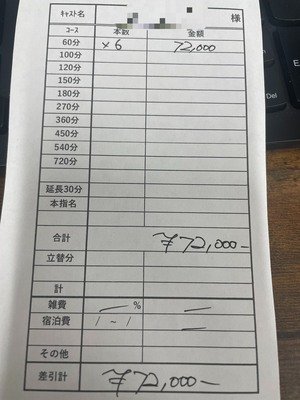 キャスト名 様
コース 本数 金額
60分 ×6 72,000
100分
120分
150分
180分
270分
360分
450分
540分
720分
延長30分
本指名
合計 ¥72,000-
立替分
計
雑費 — % —
宿泊費 / ~ / —
その他
差引計 ¥72,000-
Del